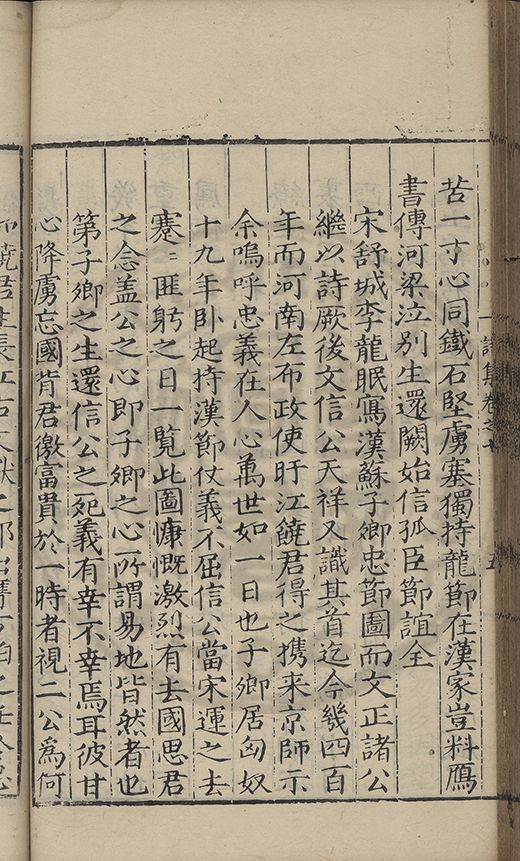 苦一寸心同鐵石堅虜塞獨持龍節在漢家豈料鴈
書傳河梁泣別生還闕始信孤臣節誼全
宋舒城李龍眠寫漢蘇子卿忠節圖而文正諸公
繼以詩厥後文信公天祥又識其首迄今幾四百
年而河南左布政使盱江饒君得之携来京師示
余嗚呼忠義在人心萬世如一日也子卿居匈奴
十九年卧起持漢節仗義不屈信公當宋運之去
蹇〻匪躬之日一覽此圖慷慨激烈有去國思君
之念盖公之心即子卿之心所謂易地皆然者也
第子卿之生還信公之死義有幸不幸焉耳彼甘
心降虜忘國背君徼富貴於一時者視二公為何
詩集卷之
五